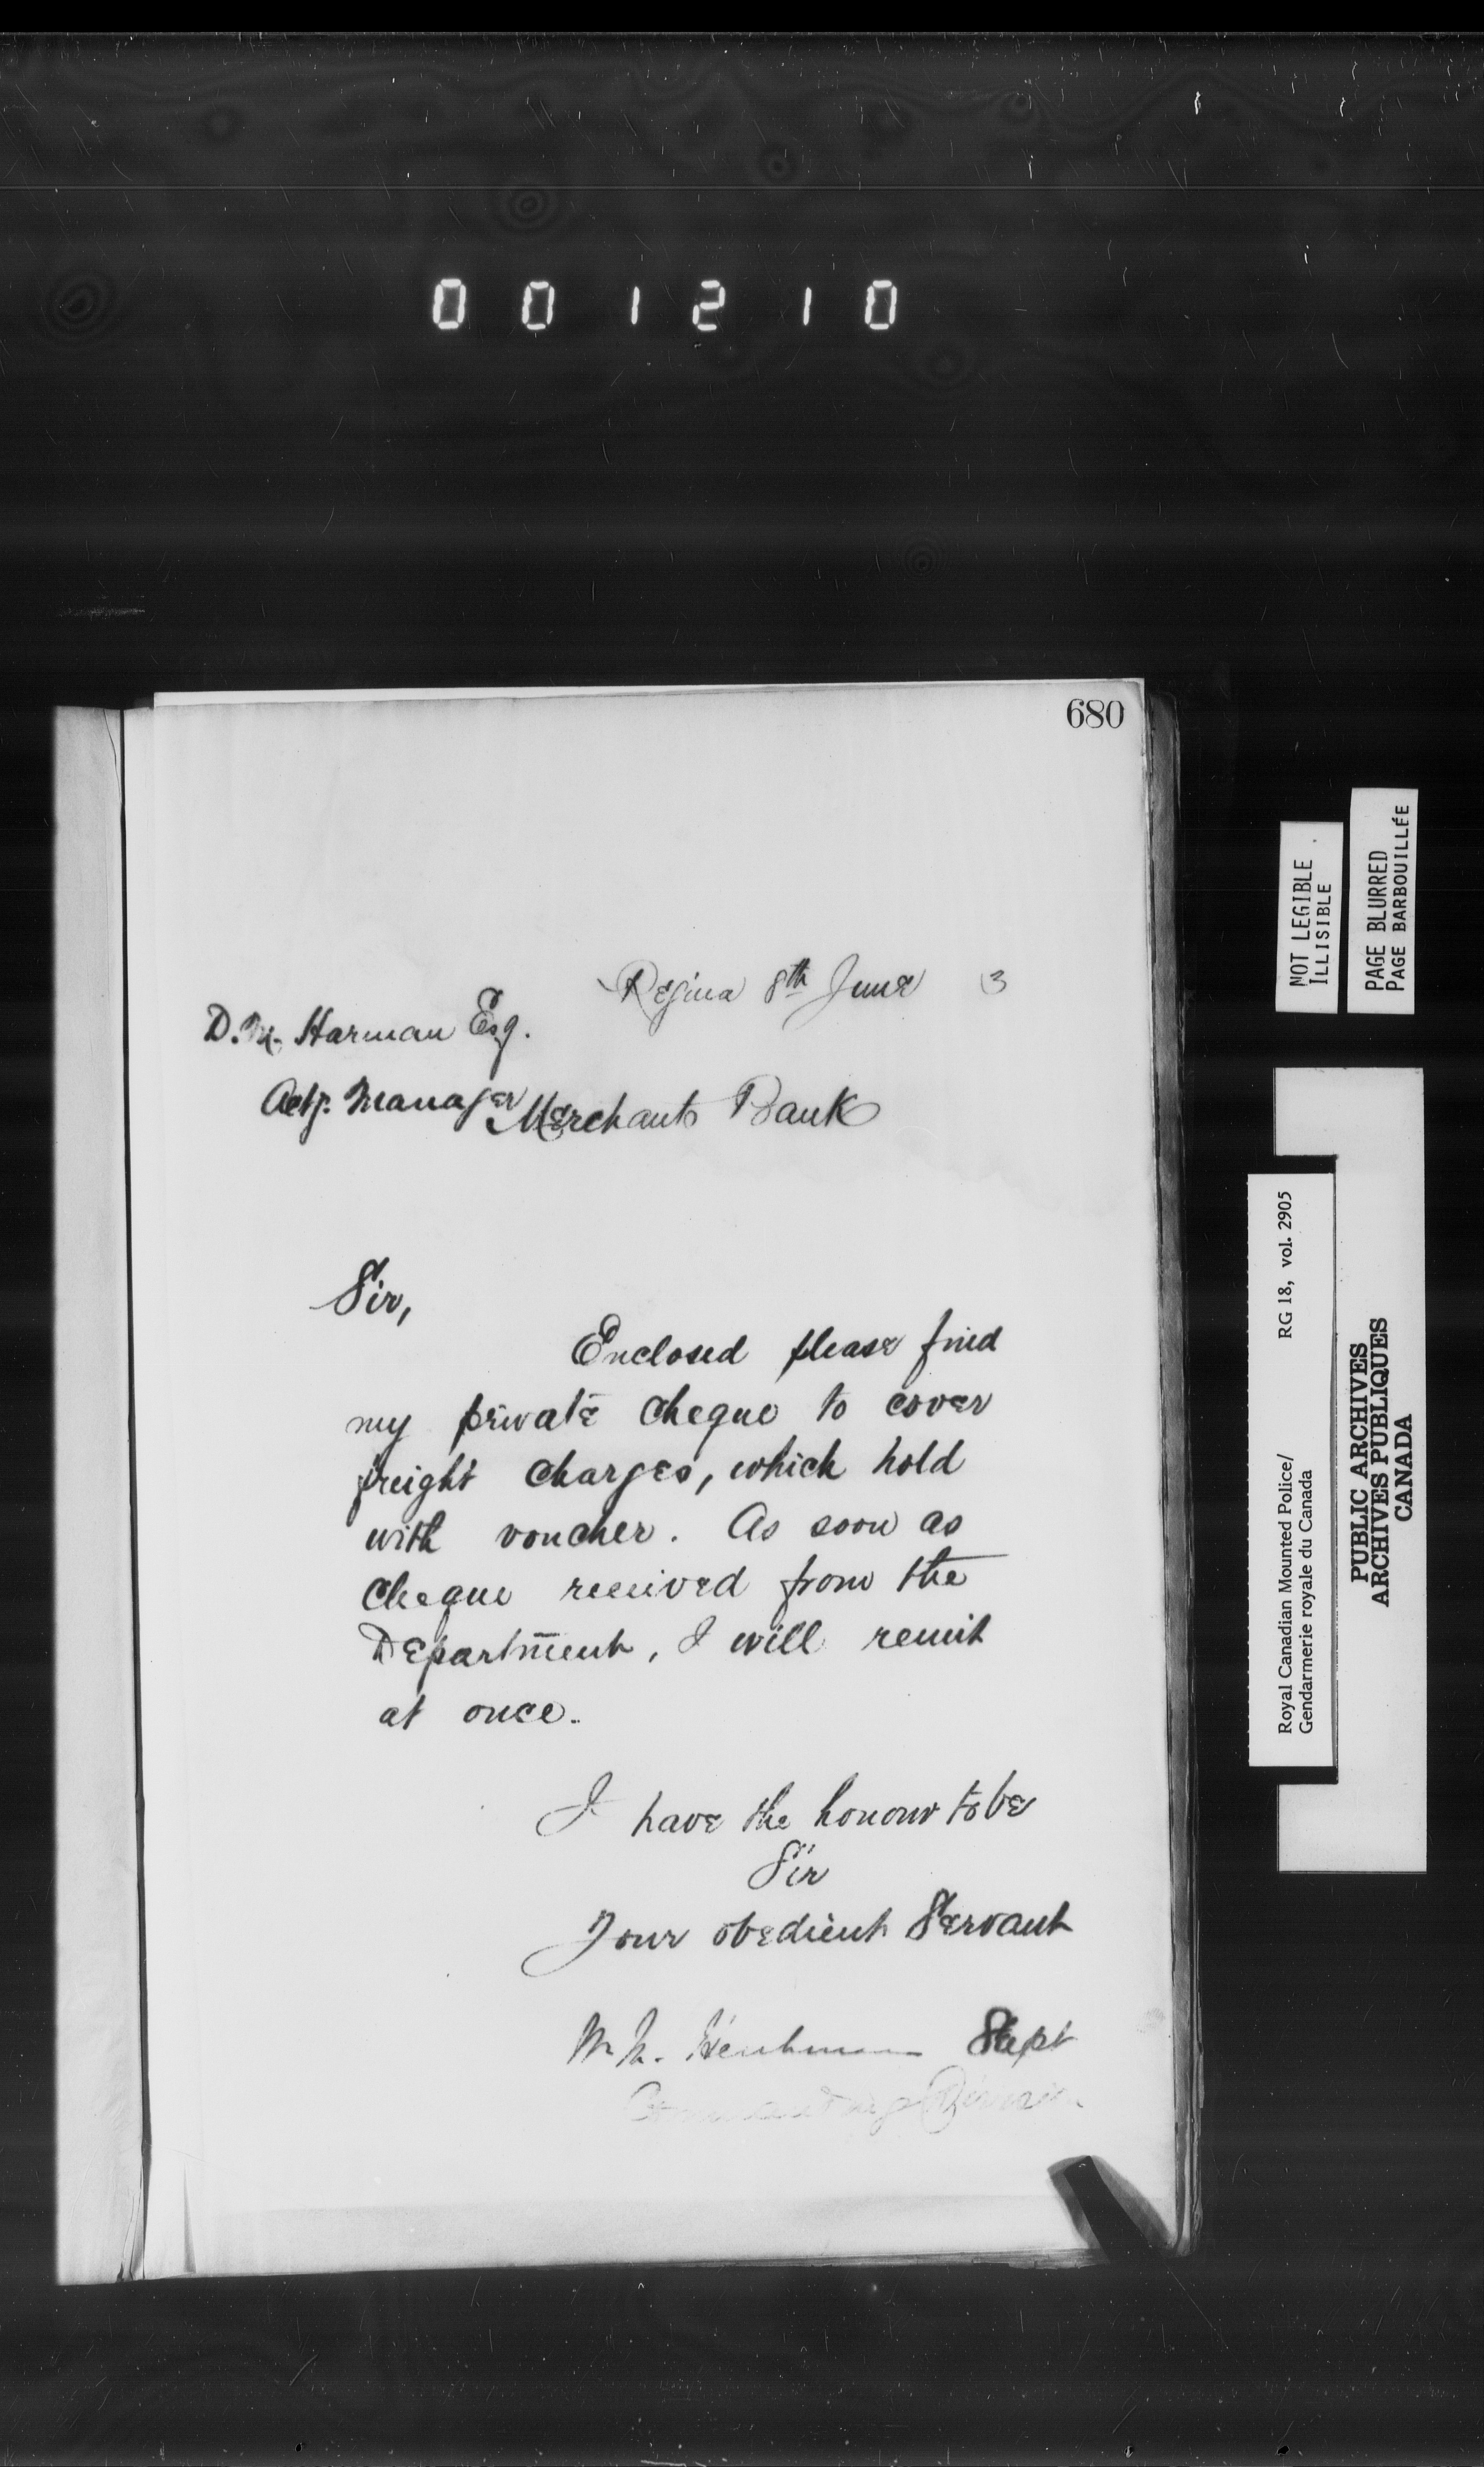 001210
680
Regina 8th June 3
D. M. Harman Esq.
Actg. Manager Merchants Bank
Sir,
Enclosed please find
my private cheque to cover
freight charges, which hold
with voucher. As soon as
cheque received from the
Department, I will remit
at once.
I have the honour to be
Sir
Your obedient Servant
Supt
Division
NOT LEGIBLE
ILLISIBLE
PAGE BLURRED
PAGE BARBOUILLÉE
Royal Canadian Mounted Police/ RG 18, vol. 2905
Gendarmerie royale du Canada
PUBLIC ARCHIVES
ARCHIVES PUBLIQUES
CANADA